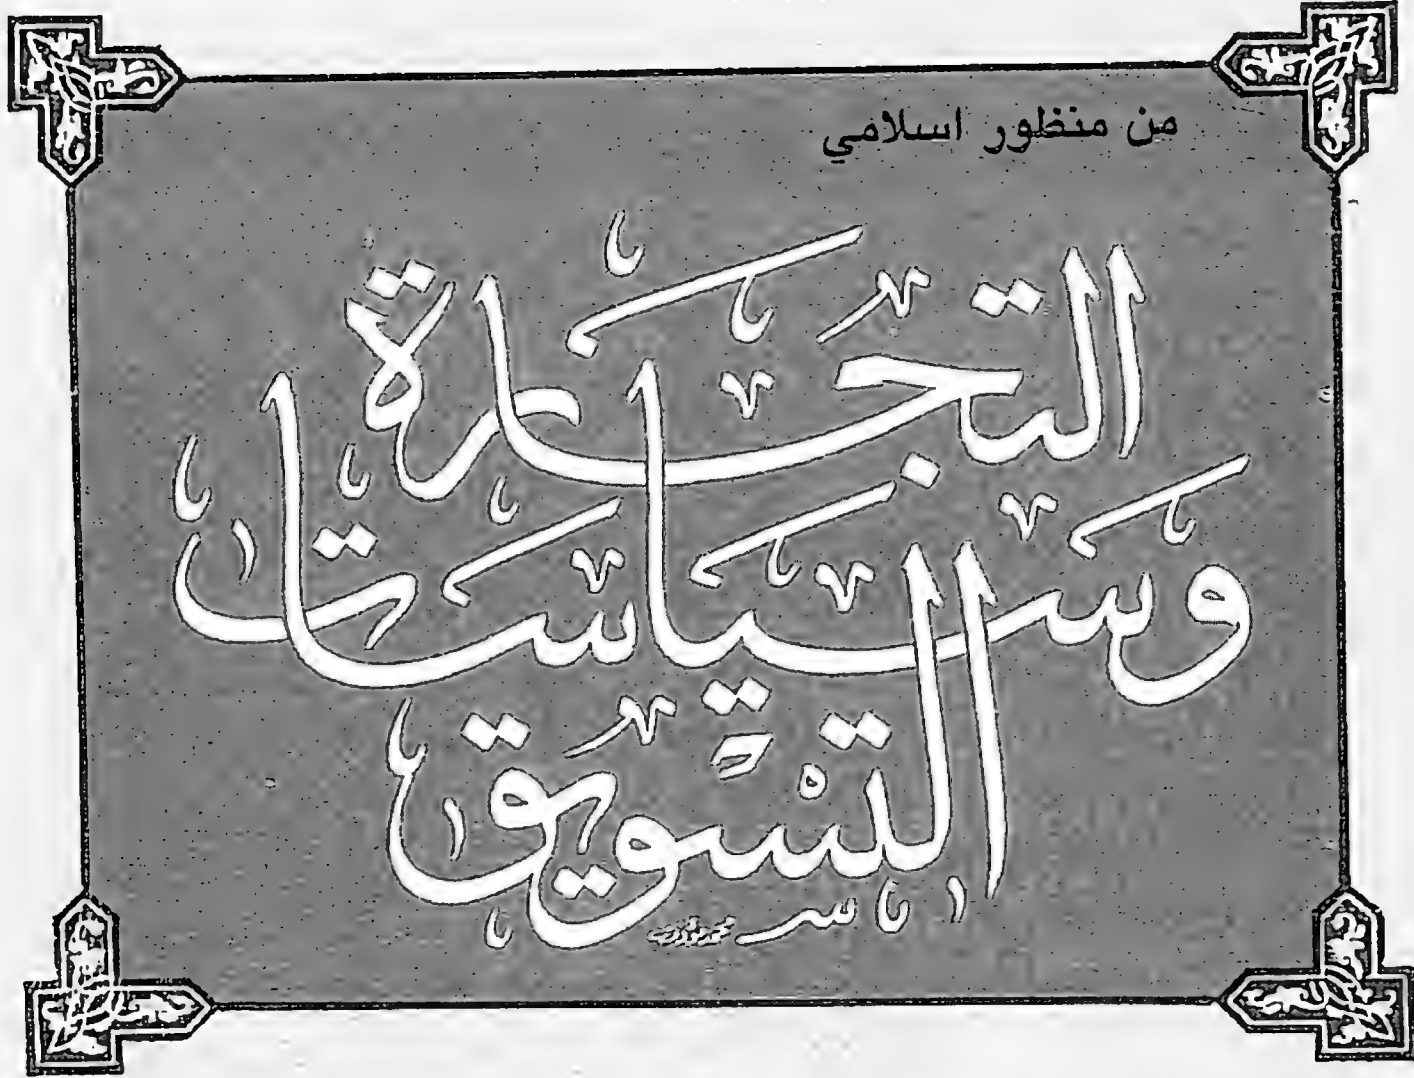 من منظور اسلامي
التجارة
وسياسات
التسويق